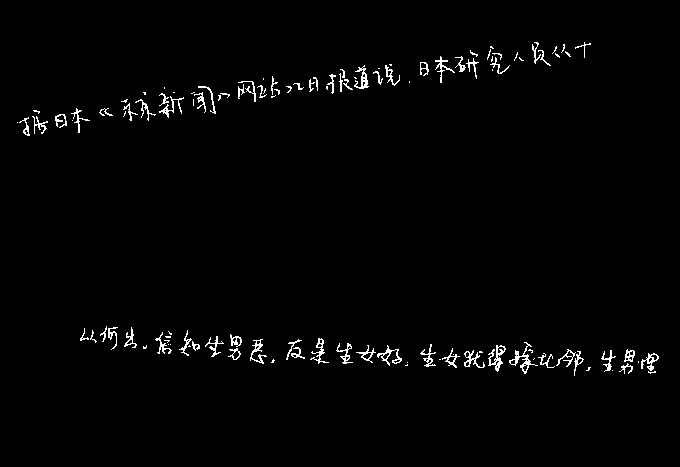 据日本《东京新闻》网站22日报道说,日本研究人员从十
从何出。信知生男恶,反是生女好,生女犹得嫁比邻,生男埋